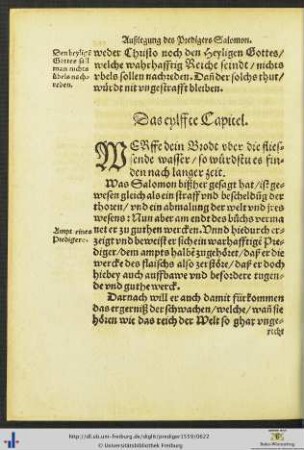 Außlegung des Predigers Salomon.
Den heylige
Gottes soll
man nichts
übels nach-
reden.
weder Christo noch den Heyligen Gottes/
welche warhafftig Reich seindt / nichts
vbels sollen nachreden. Dañ der solchs thut/
würdt nit vngestrafft bleiben.
Das eylffte Capitel.
WERffe dein Brodt vber die flies-
sende wasser / so würdstu es fin-
den nach langer zeit.
Was Salomon bißher gesagt hat / ist ge-
wesen gleich als ein straff vnd bescheldũg der
thoren / vnd ein abmalung der welt vnd jres
wesens : Nun aber am end des büchs verma
net er zu guthen wercken. Vnnd hiedurch er-
Ampt eines
Predigers.
zeigt vnd beweist er sich ein warhafftige Pre-
diger / dem ampts halbẽ zugehöret / daß er die
wercke des flaischs also zerstöre / daß er doch
hiebey auch auffbawe vnd besondere tugen-
de vnd guthe werck.
Darnach will er auch damit fürkommen
das ergerniß der schwachen / welche / wañ sie
hören wie das reich der Welt so ghar vnge-
recht
http://dl.ub.uni-freiburg.de/diglit/prediger1559/0622
© Universitätsbibliothek Freiburg